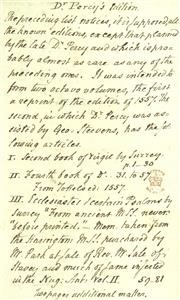 Dr Percy's Edition.
The preceding list notices, it is supposed, all
the known editions, except that planned
by the late Dr Percy and which is pro-
bably almost as rare as any of the
preceding ones. It was intended to
form two octavo volumes, the first
a reprint of the edition of 1557. The
second, in which Dr Percy was as-
sisted by Geo: Steevens, has the fol-
lowing articles.
I. Second book of Virgil by Surrey.
p. 1-30
II. Fourth book of Do. 31. to 57
From Tottel ed. 1557.
III. Ecclesiastes & certain Psalms by
Surrey "From ancient M.S. never
before printed." — Mem. taken from
the Harington M.S. purchased by
Mr Park at sale of Geo: Mr. Sale of
Stacey and much of same injected
in the Nug. Ant: Vol. II. 59.81
Two pages additional matter.